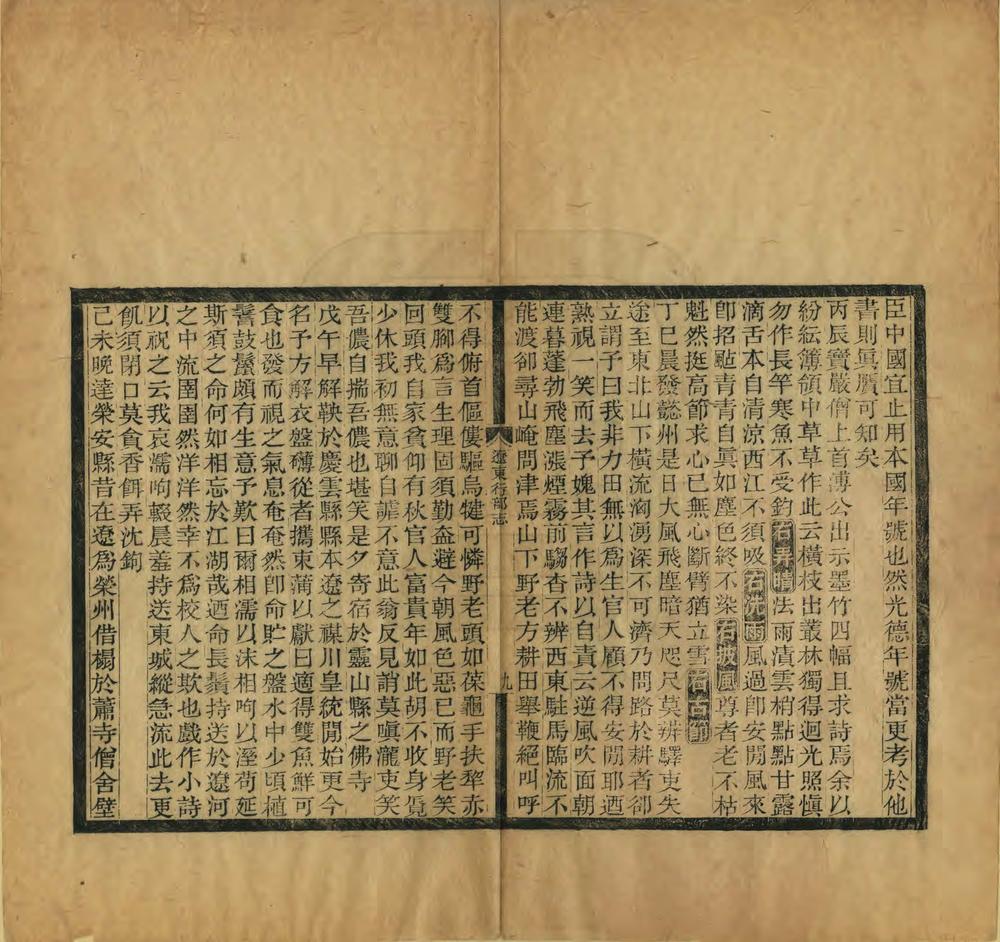 臣中國宜止用本國年號也然光德年號當更考於他
書則眞贗可知矣
丙辰寶嚴僧上首溥公出示墨竹四幅且求詩焉余以
紛紜簿領中草草作此云橫枝出叢林獨得迴光照愼
勿作長竿寒魚不受釣右弄晴法雨漬雲梢點點甘露
滴舌本自清涼西江不須吸右洗雨風過卽安閒風來
卽招颭青青自眞如塵色終不染右披風尊者老不枯
魁然挺高節求心已無心斷臂猶立雪右古節
丁巳晨發懿州是日大風飛塵暗天咫尺莫辨驛吏失
途至東北山下橫流洶湧深不可濟乃問路於耕者卻
立謂予曰我非力田無以爲生官人顧不得安閒耶迺
熟視一笑而去予媿其言作詩以自責云逆風吹面朝
連暮蓬勃飛塵漲煙霧前騶杳不辨西東駐馬臨流不
能渡卻尋山崦問津焉山下野老方耕田舉鞭絕叫呼
遼東行部志
九
不得俯首傴僂驅烏犍可憐野老頭如葆龜手扶犂赤
雙腳爲言生理固須勤盍避今朝風色惡已而野老笑
回頭我自家貧仰有秋官人富貴年如此胡不收身覓
少休我初無意聊自謔不意此翁反見誚莫嗔瀧吏笑
吾儂自揣吾儂也堪笑是夕寄宿於靈山縣之佛寺
戊午早解鞅於慶雲縣縣本遼之祺川皇統開始更今
名予方解衣盤礴從者攜東蒲以獻曰適得雙魚鮮可
食也發而視之氣息奄奄然卽命貯之盤水中少頃植
鬐鼓鬣頗有生意予歎曰爾相濡以沫相呴以溼苟延
斯須之命何如相忘於江湖哉迺命長鬚持送於遼河
之中流圉圉然洋洋然幸不爲校人之欺也戲作小詩
以祝之云我哀濡呴輟晨羞持送東城縱急流此去更
飢須閉口莫貪香餌弄沈鉤
己未晚達榮安縣昔在遼爲榮州借榻於蕭寺僧舍壁